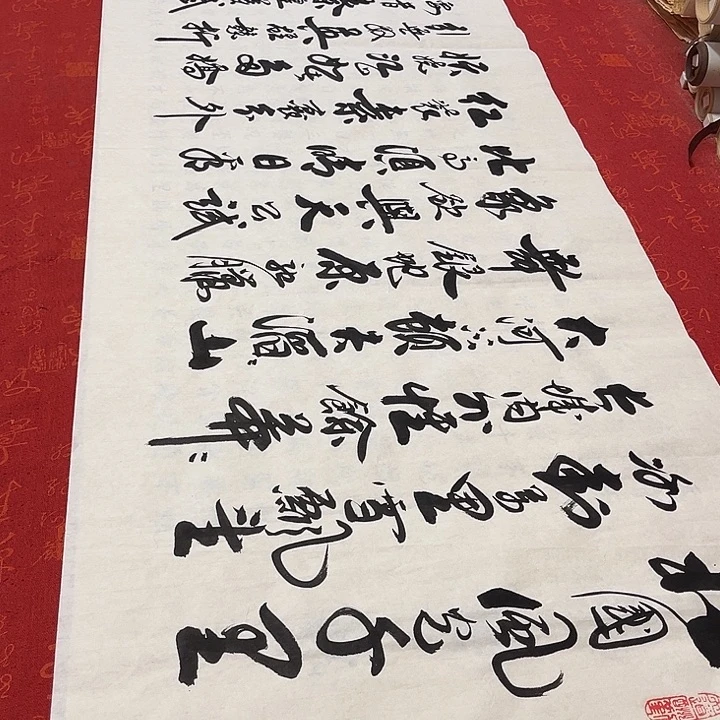 北國風光千里
冰封萬里雪飄望
長城内外惟餘莽〻
大河上下頓失滔〻山
舞銀蛇原馳蠟
象欲與天公試
比高須晴日看
紅裝素裹分外
妖嬈江山如此多嬌
引無數英雄競折
腰惜秦皇漢武